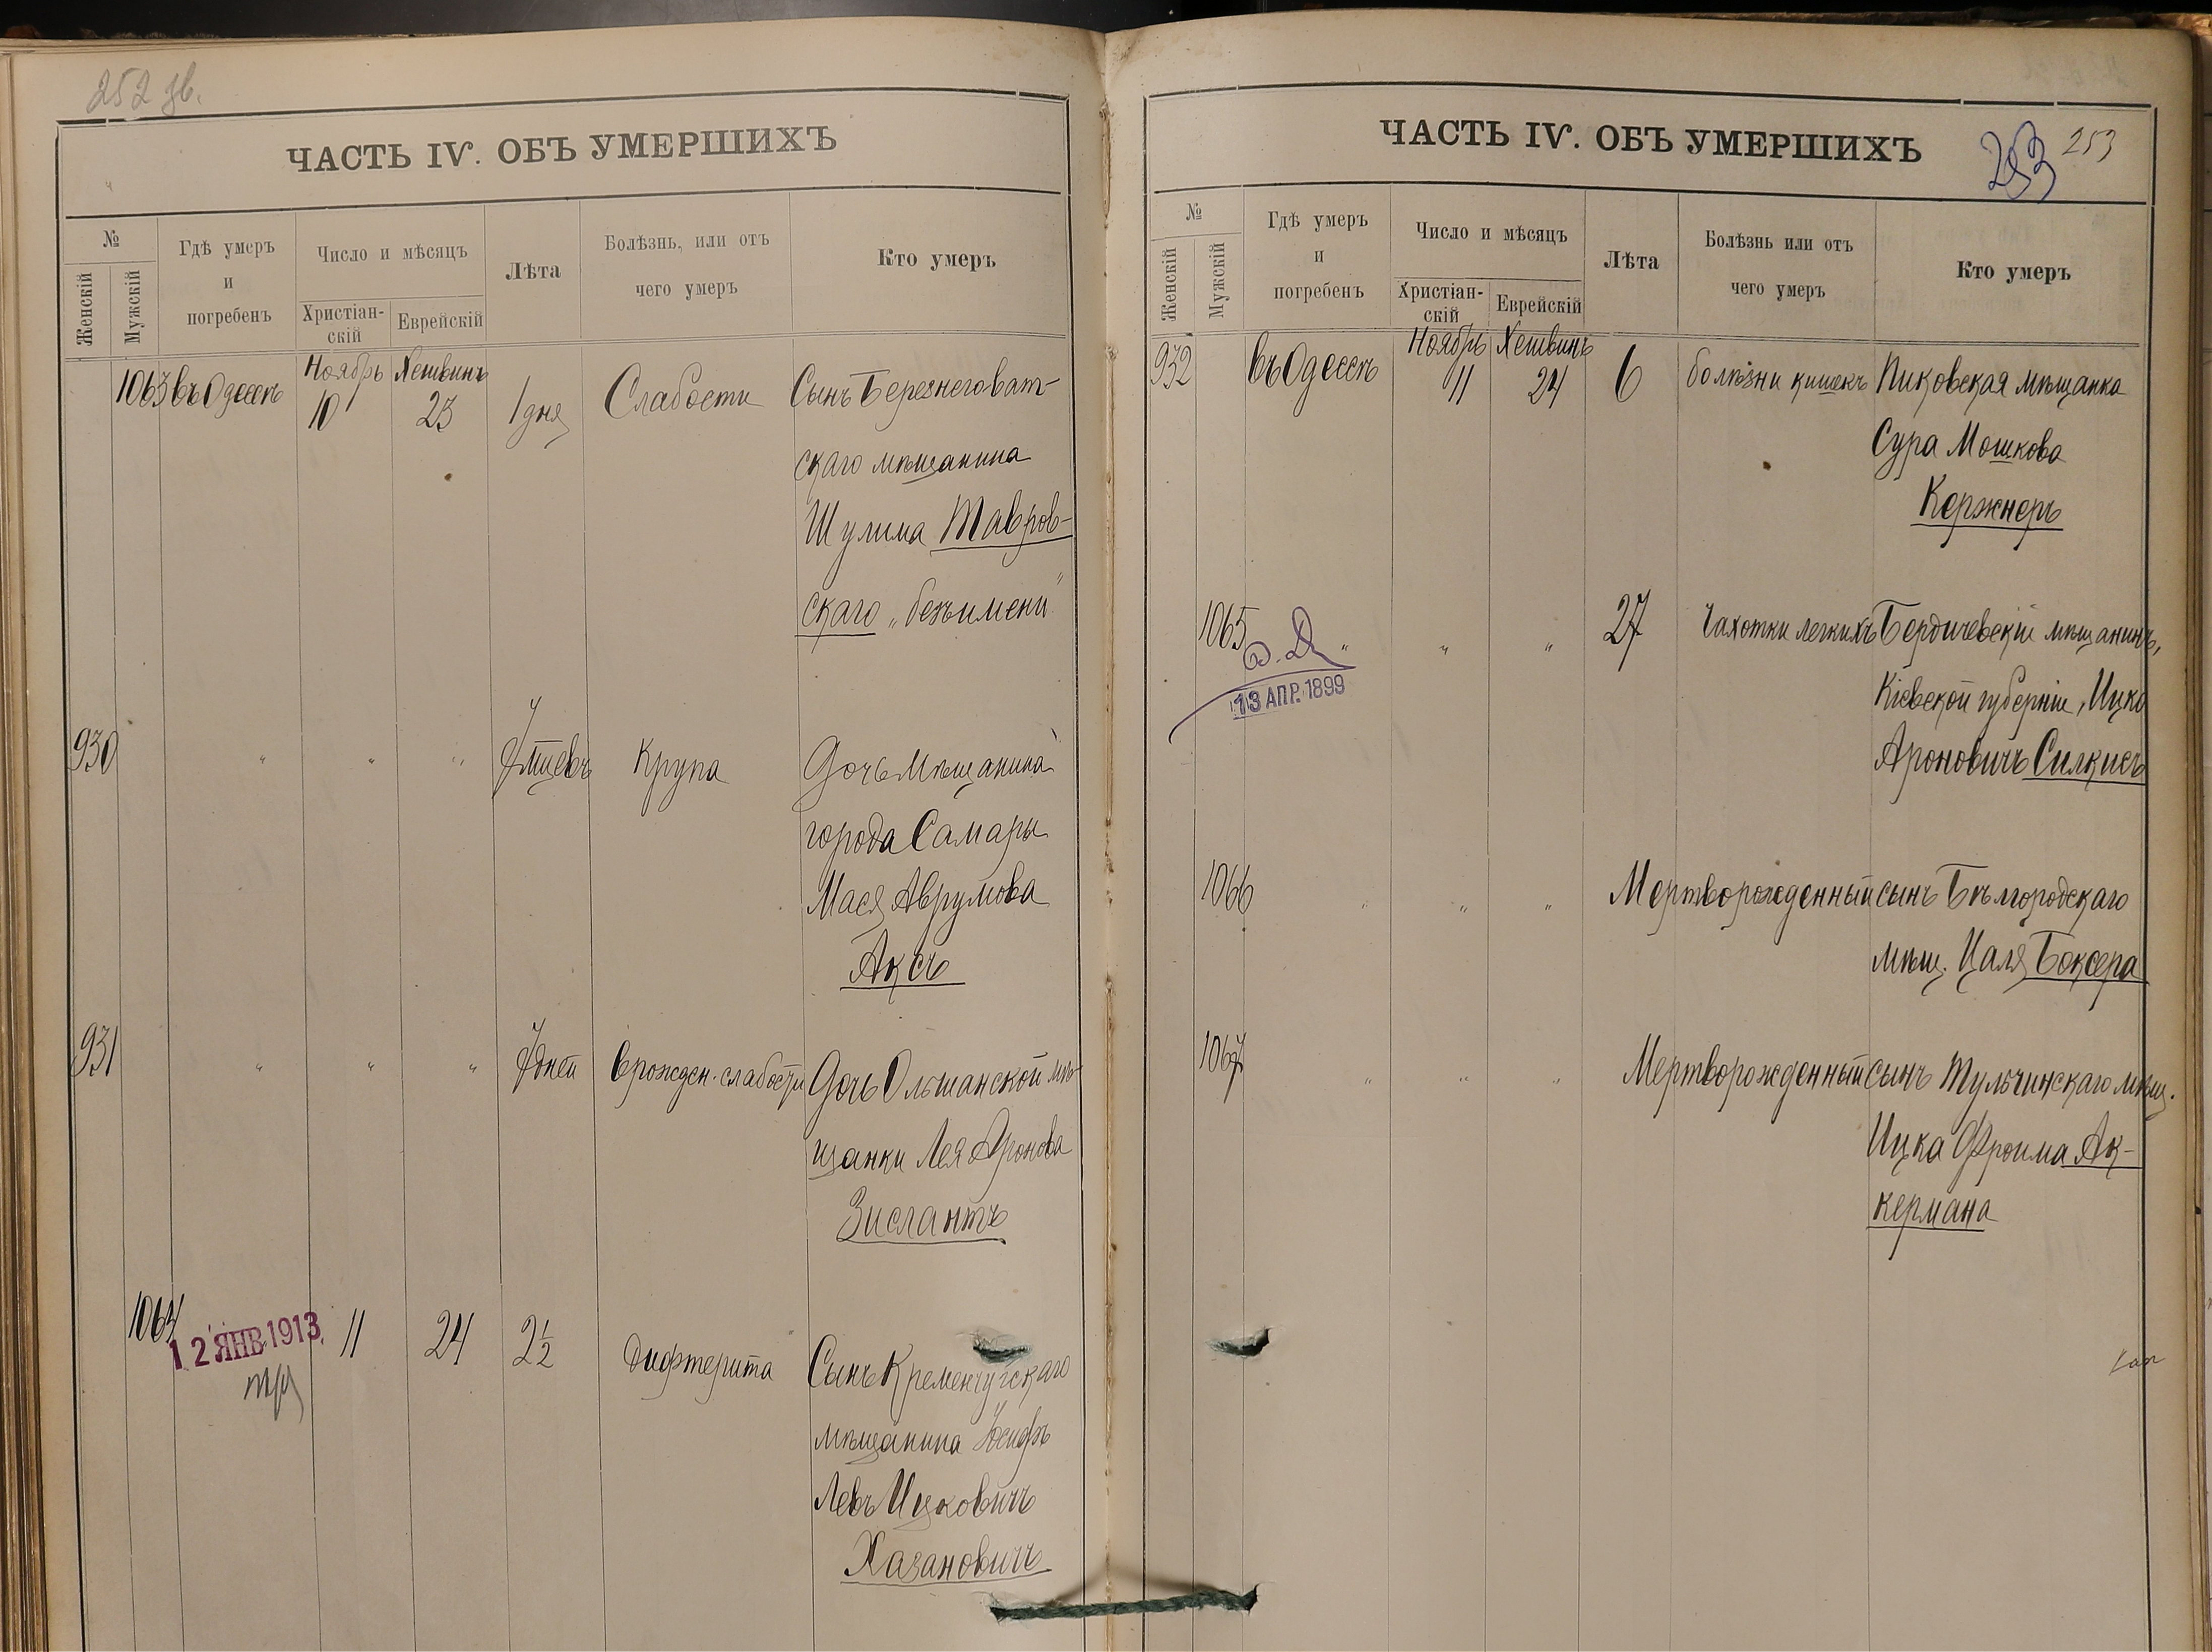 252 зв.
ЧАСТЬ IV. ОБЪ УМЕРШИХЪ
№
Женскій
Мужскій
Гдѣ умеръ
и
погребенъ
Число и мѣсяцъ
Христіан-
скій
Еврейскій
Лѣта
Болѣзнь, или отъ
чего умеръ
Кто умеръ
1063 въ Одессѣ Ноябрь 10 Хешвинъ 23 1 дня Слабости Сынъ Березнеговат-
скаго мѣщанина
Шулима Тавров-
скаго „безъ имени"
930 " " " 7 мцевъ Крупа Дочь мѣщанина
города Самары
Мася Аврумова
Аксъ
931 " " " 7 дней Врожден. слабости Дочь Ольшанской мѣ-
щанки Лея Аронова
Зислантъ
1064 11 24 2½ Дифтерита Сынъ Кременчугскаго
12 ЯНВ 1913
мѣщанина Іосифъ
Левъ Ицковичъ
Хазановичъ
ЧАСТЬ IV. ОБЪ УМЕРШИХЪ
253 253
№
Женскій
Мужскій
Гдѣ умеръ
и
погребенъ
Число и мѣсяцъ
Христіан-
скій
Еврейскій
Лѣта
Болѣзнь или отъ
чего умеръ
Кто умеръ
932 въ Одессѣ Ноябрь 11 Хешвинъ 24 6 болѣзни кишекъ Пиковская мѣщанка
Сура Мошкова
Кержнеръ
1065 " " " 27 Чахотки легкихъ Бердичевскій мѣщанинъ,
13 АПР. 1899
Кіевской губерніи, Ицко
Ароновичъ Силкисъ
1066 " " " Мертворожденный сынъ Бѣлгородскаго
мѣщ. Цаля Боксера
1067 " " " Мертворожденный сынъ Тульчинскаго мѣщ.
Ицка Фроима Ак-
кермана